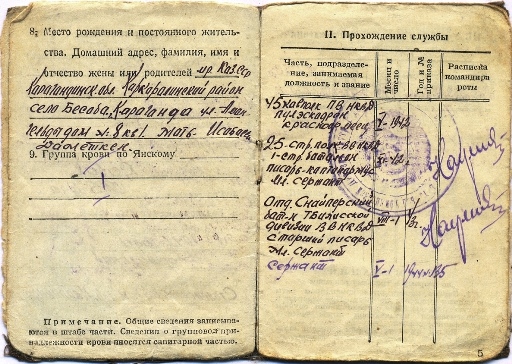 8. Место рождения и постоянного житель-
ства. Домашний адрес, фамилия, имя и
отчество жены или родителей ур. Каз.ССР
Карагандинск. обл. Каркаралинский район
село Бесоба, Караганда ул.
дом № 8 кв 1 Мать
Даулеткен.
9. Группа крови по Янскому
I
Примечание. Общие сведения записыва-
ются в штабе части. Сведения о групповой при-
надлежности крови вносятся санитарной частью.
II. Прохождение службы
Часть, подразделе-
ние, занимаемая
должность и звание
Месяц и
число
Год и №
приказа
Расписка
командира
роты
45 кавполк ПВ НКВД
пульэскадрон
красноармеец
V-1942
25 стр. полк ВВ НКВД
1-стр. батальон
писарь-каптенармус
Мл. Сержант
Отд. Снайперский
бат-н Тбилисской
дивизии ВВ НКВД
старший писарь
Мл. Сержант
VIII-1
Сержант
V-1
5